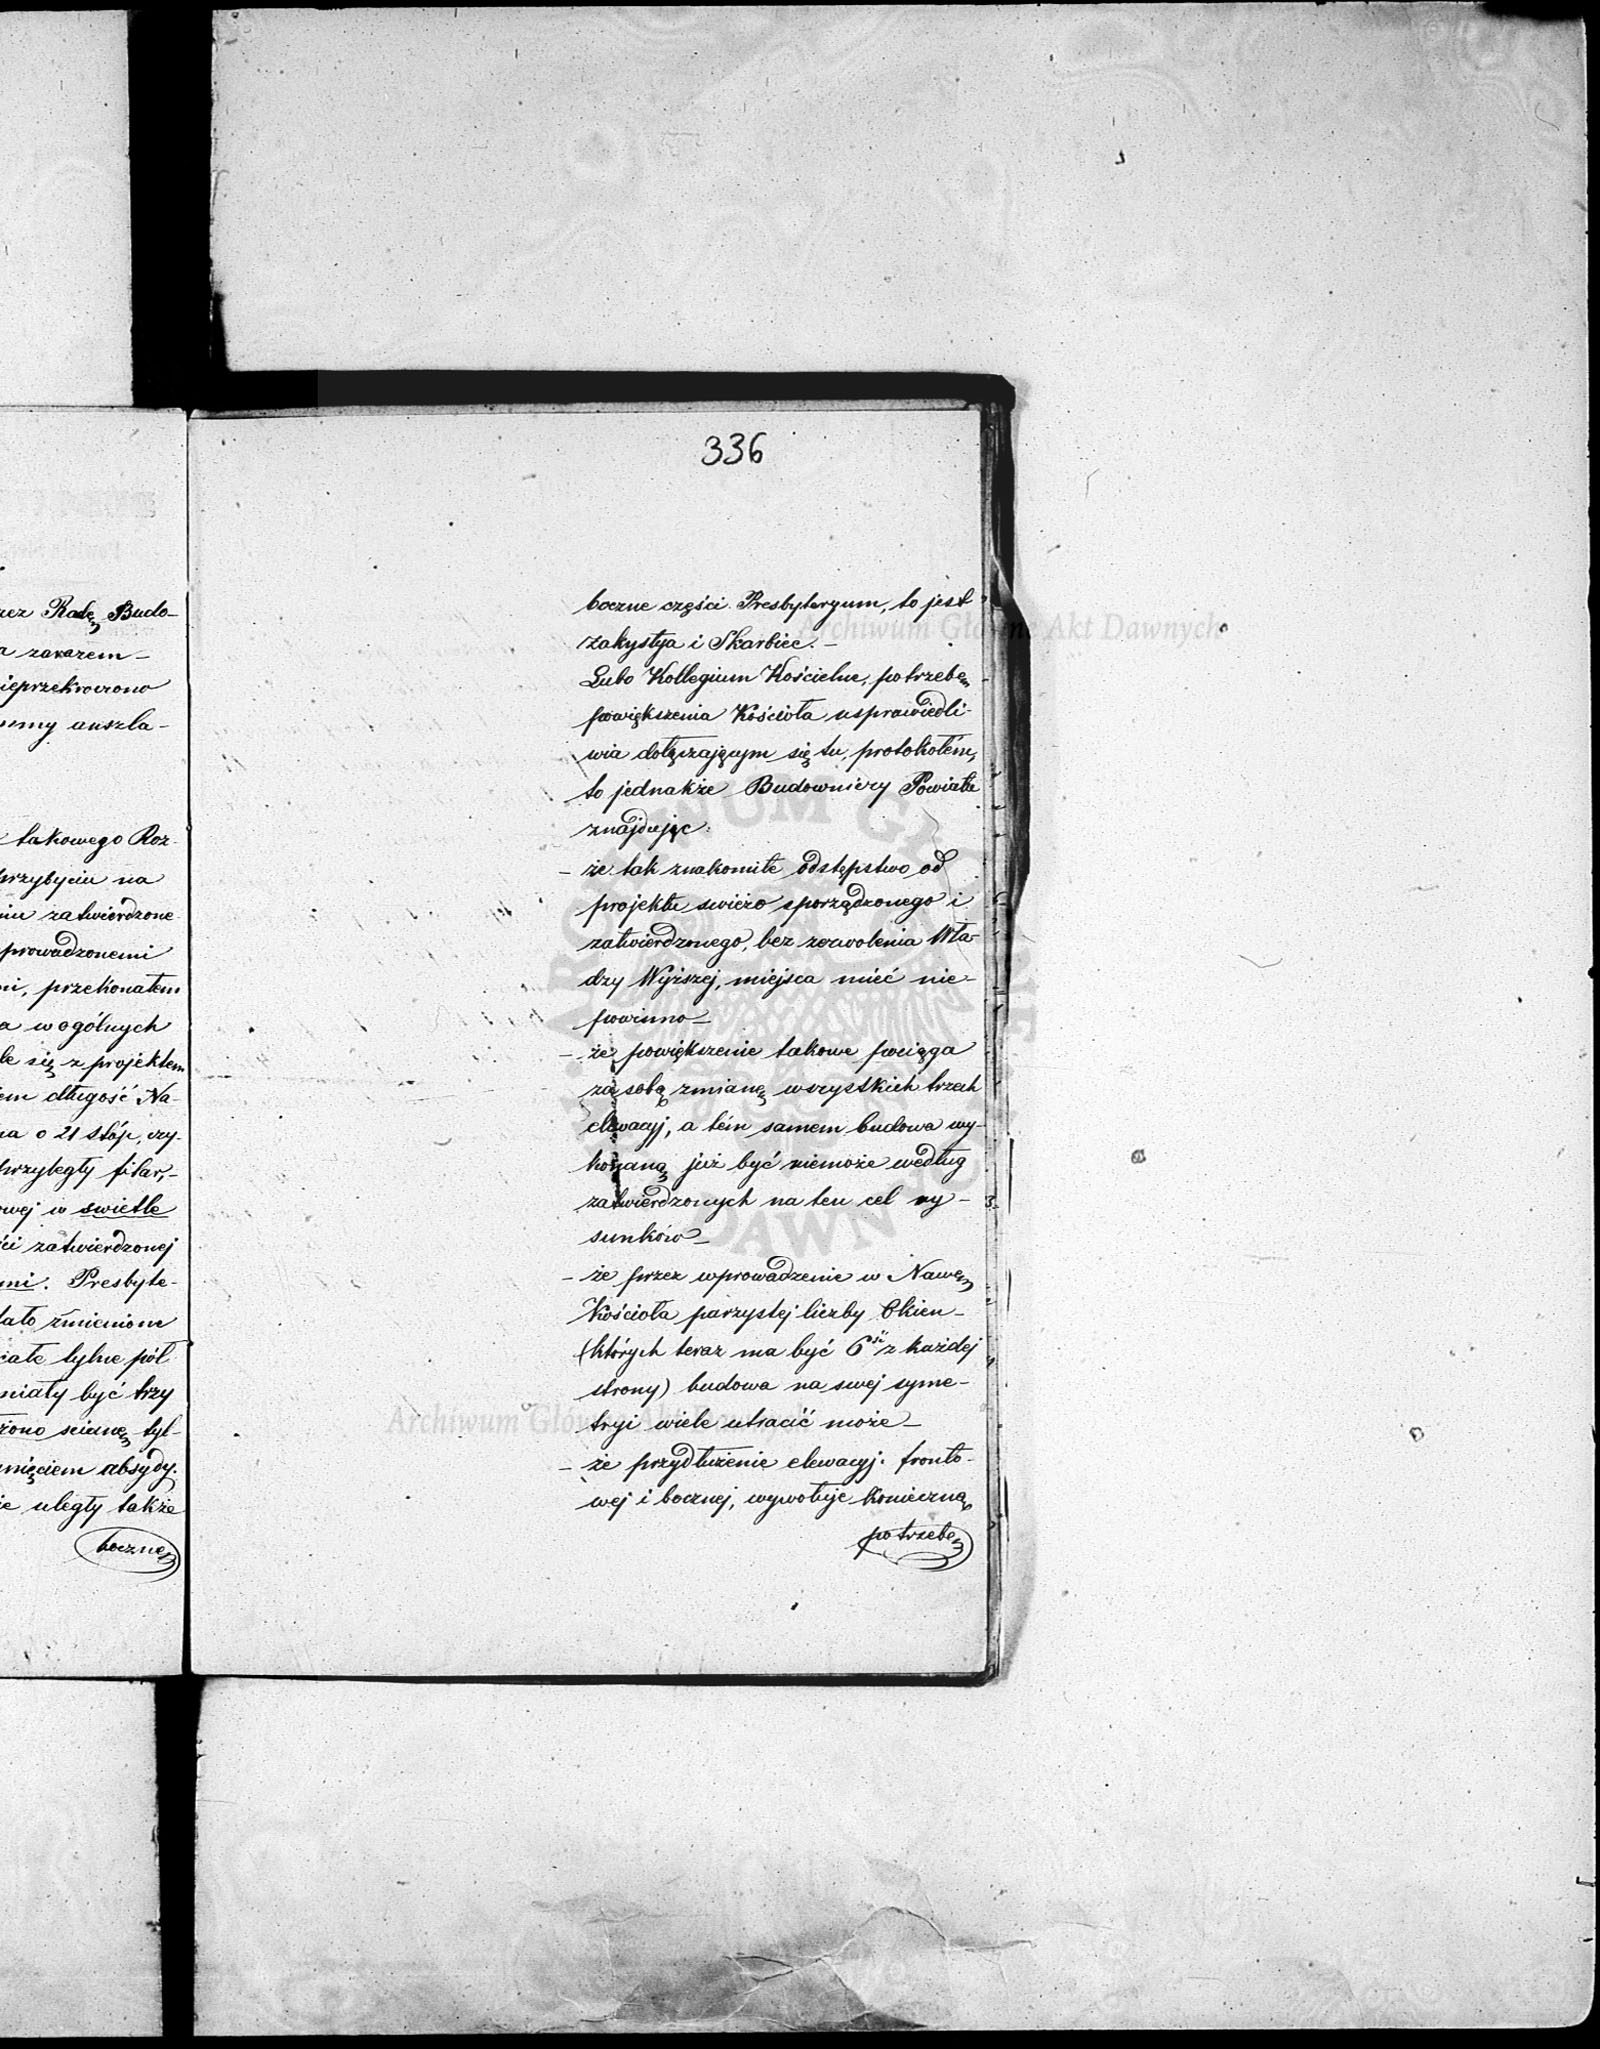 336
rzez Radę Budo-
a zarazem -
ieprzekroczono
my anszla-
takowego Roz-
przybyciu na
niu zatwierdzone
prowadzonemi
ni, przekonałem
a w ogólnych
le się z projektem
em długość Na-
na o 21 stóp, czy-
przyległy filar,-
wej w świetle
ści zatwierdzonej
mi. Presbyte-
ało zmienione
całe tylne pół
miały być trzy
żono scianę tyl-
nięciem absydy.
ie uległy także
boczne
boczne części Presbyteryum, to jest
Zakystya i Skarbiec. -
Lubo Kollegium Kościelne, potrzebę
powiększenia Kościoła usprawiedli-
wia dołączającym się tu protokołem,
to jednakże Budowniczy Powiatu
znajdując:
- że tak znakomite odstępstwo od
projektu świeżo sporządzonego i
zatwierdzonego, bez zezwolenia Wła-
dzy Wyższej, miejsca mieć nie-
powinno -
- że powiększenie takowe pociąga
za sobą zmianę wszystkich trzech
elewacyj, a tém samem budowa wy-
konaną już być niemoże według
zatwierdzonych na ten cel ry-
sunków -
- że przez wprowadzenie w Nawę
Kościoła parzystej liczby Okien -
(których teraz ma być 6ść z każdej
strony) budowa na swej syme-
tryi wiele utracić może -
- że przydłużenie elewacyj fronto-
wej i bocznej, wywołuje konieczną
potrzebę
Archiwum Główne Akt Dawnych
Archiwum Główne Akt Dawnych